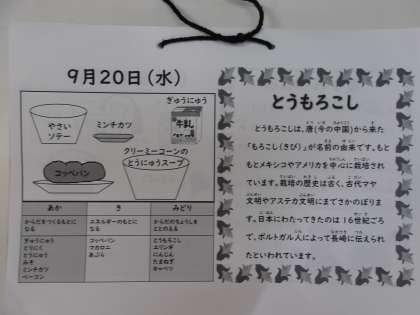 9月20日(水)
やさい
ソテー
ミンチカツ
ぎゅうにゅう
牛乳
コッペパン
クリーミーコーンの
とうにゅうスープ
あか
き
みどり
からだをつくるもとに
なる
エネルギーのもとに
なる
からだのちょうしを
ととのえる
ぎゅうにゅう
とりにく
とうにゅう
みそ
ミンチカツ
ベーコン
コッペパン
マカロニ
あぶら
とうもろこし
エリンギ
にんじん
たまねぎ
キャベツ
とうもろこし
とうもろこしは、唐(今の中国)から来た
「もろこし(きび)」が名前の由来です。もと
もとメキシコやアメリカを中心に栽培され
ています。栽培の歴史は古く、古代マヤ
文明やアステカ文明にまでさかのぼりま
す。日本にわたってきたのは16世紀ごろ
で、ポルトガル人によって長崎に伝えられ
たといわれています。